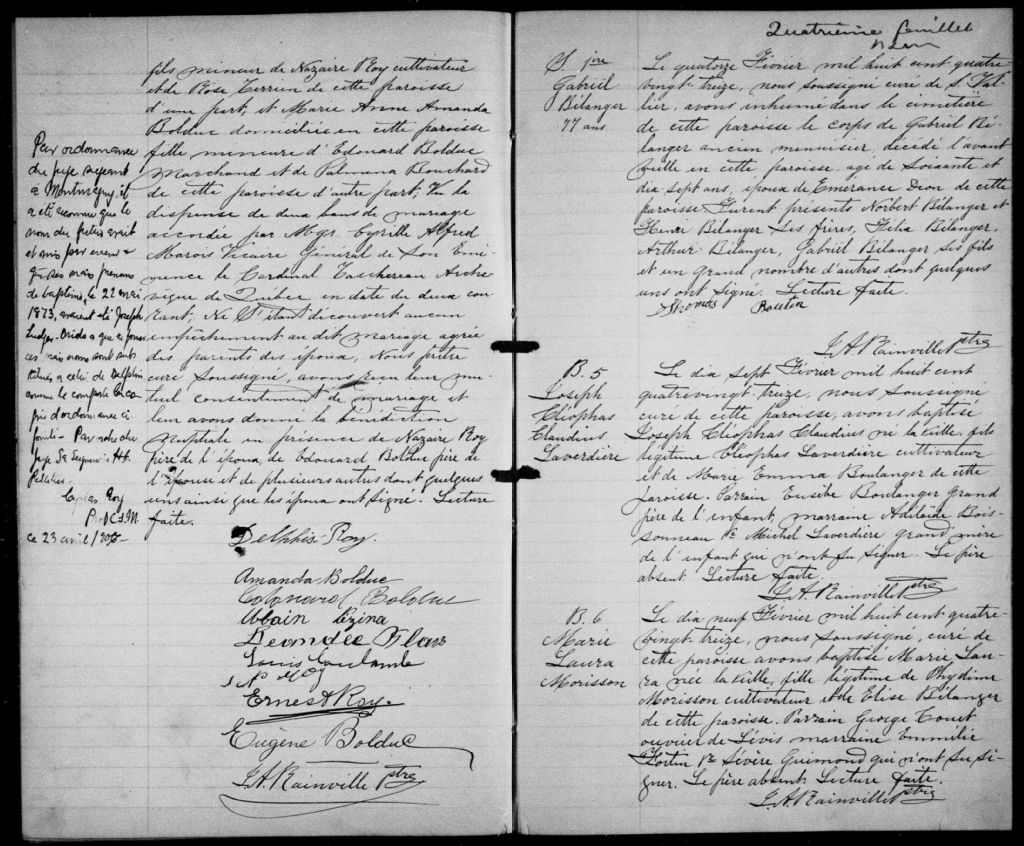 fils mineur de Nazaire Roy cultivateur
et de Rose Terrien de cette paroisse
d'une part, et Marie Anne Amanda
Bolduc domiciliée en cette paroisse
fille mineure d'Edouard Bolduc
Marchand et de Philmena Bouchard
de cette paroisse d'autre part; Vu la
dispense de deux bans de mariage
accordée par Mgr. Cyrille Alfred
Marois Vicaire Général de Son Emi-
nence le Cardinal Taschereau Arche-
vêque de Québec en date du deux cou-
rant, Ne S'étant découvert aucun
empêchement au dit mariage agrée
des parents des époux, Nous prêtre
curé soussigné, avons reçu leur mu-
tuel consentement de mariage et
leur avons donné la bénédiction
Nuptiale en présence de Nazaire Roy
père de l'époux, de Edouard Bolduc père de
l'Epouse et de plusieurs autres dont quelques
uns ainsi que les époux ont signé. Lecture
faite.
Par ordonnance
du jugeségeant
à Montmagny, il
a été reconnu que le
nom du
et
que ses vrais prénoms
de baptême, le 22 mai
1873, avaient été Joseph
Ludger. Ordre a que ce
ces vrais noms sont subs
titués à celui de Delphis
comme le comporte la co
pie d'ordonnance ci
jointe - Par
juge
Pelletier.
Roy
P. C.S.M.
ce 23 avril 1905-
Delphis Roy.
Amanda Bolduc
Edouard Bolduc
Lizina
Louis Coulombe
N Roy
Ernest Roy.
Eugène Bolduc
J.A. Rainville ptre
Quatrième feuillet
S 1re
Gabriel
Bélanger
77 ans
Le quatorze Février mil huit cent quatre-
vingt-treize, nous soussigné curé de S. Val-
lier, avons inhumé dans le cimetière
de cette paroisse le corps de Gabriel Bé-
langer ancien menuisier, décédé l'avant
veille en cette paroisse, agé de Soixante et
dix sept ans, époux de Emerance Dion de cette
paroisse Furent présents Norbert Bélanger et
Henri Bélanger Ses frères, Félix Bélanger,
Arthur Bélanger, Gabriel Bélanger, Ses fils
et un grand nombre d'autres dont quelques
uns ont signé. Lecture faite.
Thomas Boutin
J.A. Rainville ptre
B. 5
Joseph
Cléophas
Claudius
Laverdière
Le dix sept Février mil huit cent
quatrevingt-treize, nous soussigné
curé de cette paroisse, avons baptisé
Joseph Cléophas Claudius né la veille, fils
légitime Cléophas Laverdière cultivateur
et de Marie Emma Boulanger de cette
paroisse. Parrain Eusèbe Boulanger grand
père de l'enfant, marraine Adélaide Bois-
sonneau Ve Michel Laverdière grand'mère
de l'enfant qui n'ont su signer. Le père
absent Lecture faite.
J.A. Rainville ptre
B. 6
Marie
Laura
Morisson
Le dix neuf Février mil huit cent quatre-
vingt-treize, nous soussigné, curé de
cette paroisse avons baptisé Marie Lau-
ra née la veille, fille légitime de Phydime
Morisson cultivateur et de Elise Bélanger
de cette paroisse. Parrain George
ouvrier de Lévis marraine Emmélie
Fortin Ve Sévère Guimond qui n'ont su si-
gner. Le père absent. Lecture faite.
J.A. Rainville ptre